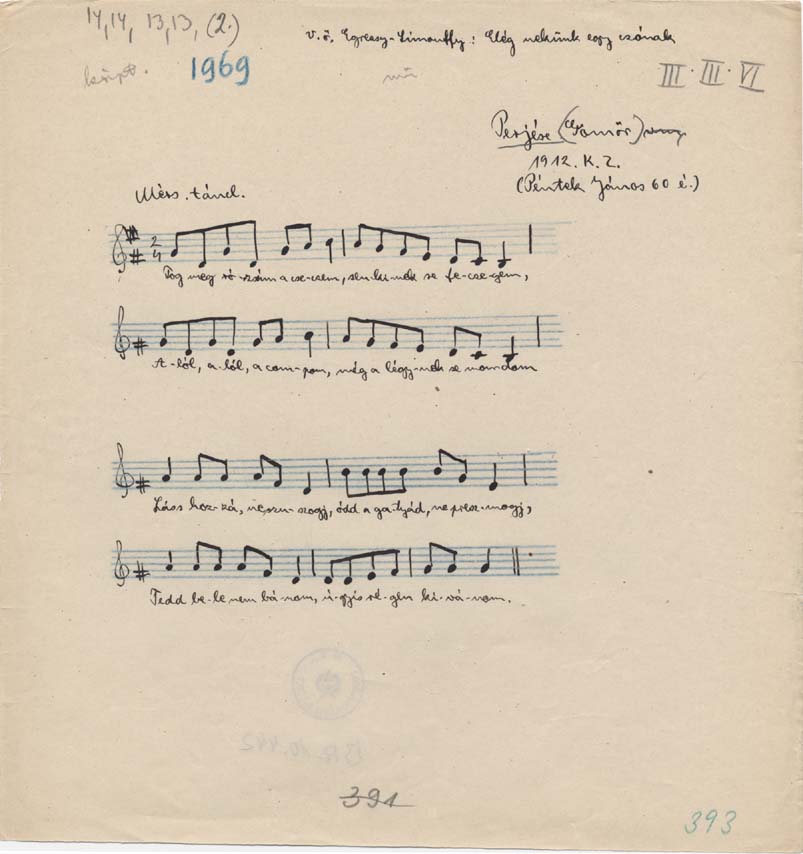 14,14, 13,13, (2.)
v.ö. Egressy-Simonffy: Elég nekünk egy csónak
1969
III·III·VI
Perjése (Gömör)
1912. K. Z.
(Péntek János 60 é.)
Mérs. táncl.
2
4
Fog meg ró-zsám a cse-csem, sen-ki-nek se fe-cse-gem,
A-lól, a-lól, a com-pom, még a légy-nek se mon-dom
Láss hoz-zá, ne szu-szogj, ódd a ga-tyád,
Tedd be-le nem bá-nom, ú-gyis ré-gen ki-vá-nom.
391
393